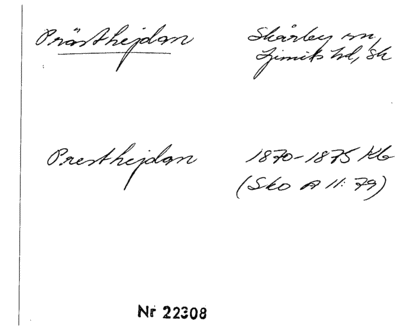 Prästhejdan Skårby sn,
Ljunits hd, Sk
Presthejdan 1870-1875 Kb
(Sko A II: 79)
Nr 22308